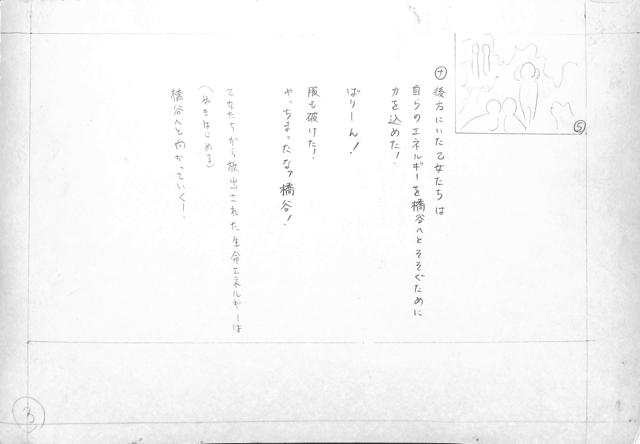 ⑤
ナ 後方にいた乙女たちは
自らのエネルギーを橋谷へとそそぐために
力を込めた!
ばりーん!
服も破けた!
やっちまったなァ橋谷!
乙女たちから放出された生命エネルギーは
(ぬきはじめる)
橋谷へと向かっていく!
3